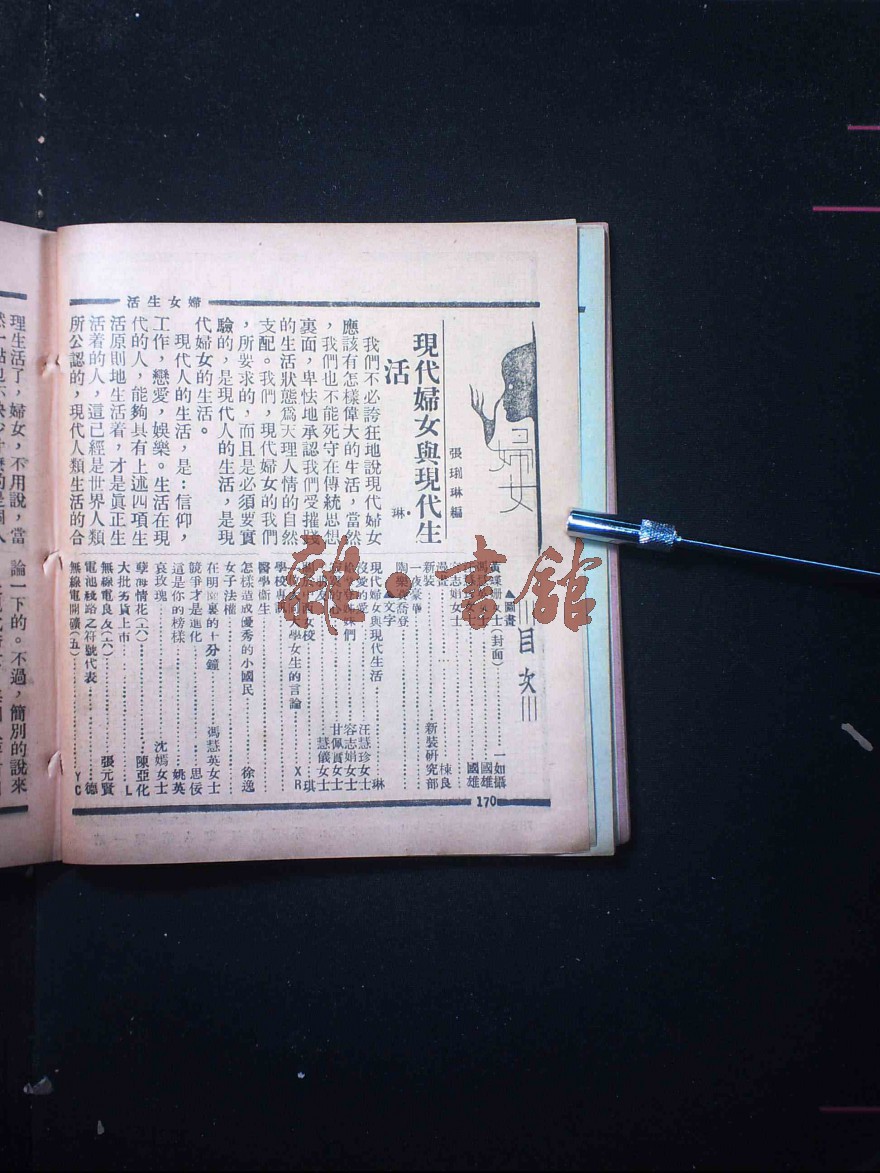 婦女生活
婦女
張琍琳編
現代婦女與現代生
活
琳
我們不必誇狂地說現代婦女
應該有怎樣偉大的生活,當然
,我們也不能死守在傳統思想
裏面,卑怯地承認我們受摧殘
的生活狀態爲天理人情的自然
支配。我們,現代婦女的我們
,所要求的,而且是必須要實
驗的,是現代人的生活,是現
代婦女的生活。
現代人的生活,是:信仰,
工作,戀愛,娛樂。生活在現
代的人,能夠具有上述四項生
活原則地生活着,才是眞正生
活着的人,這已經是世界人類
所公認的,現代人類生活的合
目次
▲圖畫
女士(封面)……一如攝
國雄
國雄
志娟女士……棟良
一夜豪華
新裝……新裝研究部
陶樂
喬登
▲文字
現代婦女與現代生活……琳
愛的愛……汪慧珍女士
姊妹們……容志娟女士
甘佩實女士
慧儀女士
女校……琪
大學女生的言論……XR
學校專訊
醫學衛生
怎樣造成優秀的小國民……徐逸
女子法權
在明園裏的十分鐘……馮慧英女士
競爭才是進化……思佞
這是你的榜樣……姚英
哀玫瑰……沈嫣女士
孽海情花(十六)……陳亞化
大批劣貨上市……L
無線電良友(六)……張元賢
電池綫路之符號代表……德
無線電開礦(五)……YC
170
理生活了,婦女,不用說,當
論一下的。不過,簡別的說來
雜·書館